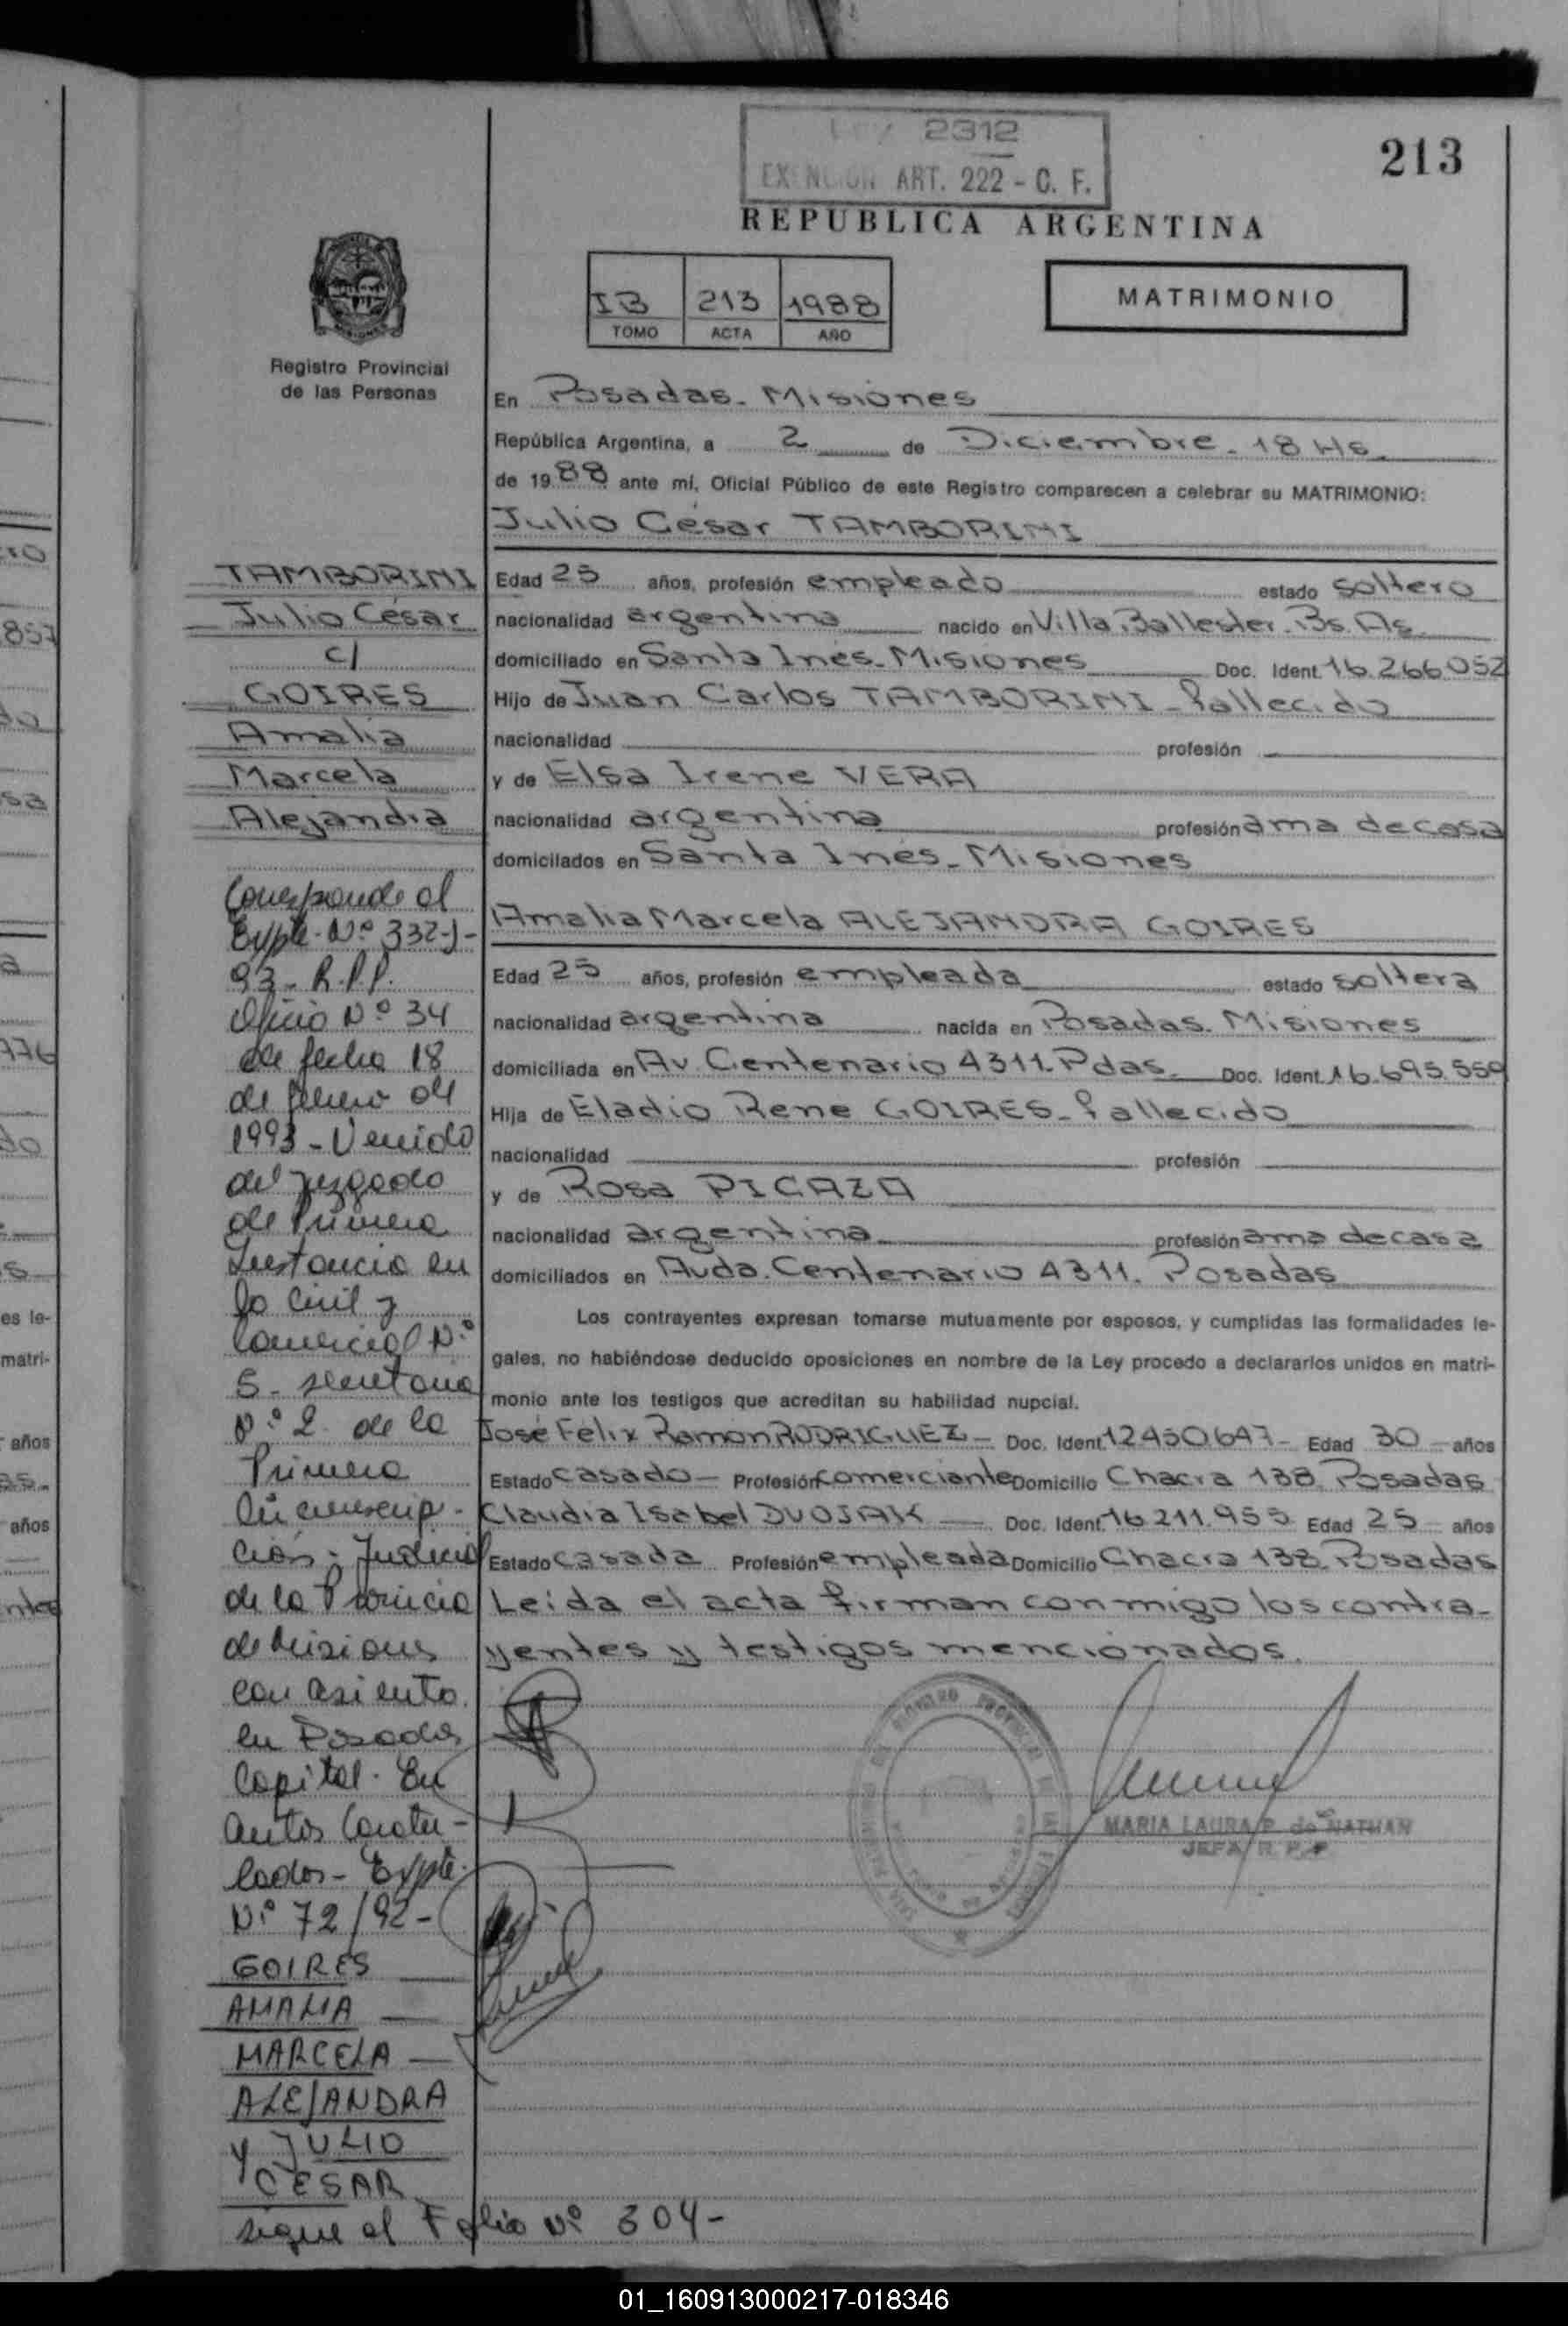 Ley 2312
EXENCION ART. 222 - C. F.
213
REPUBLICA ARGENTINA
IB 213 1988
TOMO ACTA AÑO
MATRIMONIO
Registro Provincial
de las Personas
En Posadas - Misiones
República Argentina, a 2 de Diciembre - 18 Hs.
de 1988 ante mí, Oficial Público de este Registro comparecen a celebrar su MATRIMONIO:
Julio César TAMBORINI
Edad 25 años, profesión empleado estado soltero
nacionalidad argentina nacido en Villa Ballester - Bs. As.
domiciliado en Santa Inés - Misiones Doc. Ident. 16.266.052
Hijo de Juan Carlos TAMBORINI - fallecido
nacionalidad profesión
y de Elsa Irene VERA
nacionalidad argentina profesión ama de casa
domicilados en Santa Inés - Misiones
Amalia Marcela ALEJANDRA GOIRES
Edad 25 años, profesión empleada estado soltera
nacionalidad argentina nacida en Posadas - Misiones
domiciliada en Av. Centenario 4311 - Pdas. Doc. Ident. 16.695.550
Hija de Eladio Rene GOIRES - fallecido
nacionalidad profesión
y de Rosa PICAZA
nacionalidad argentina profesión ama de casa
domiciliados en Avda. Centenario 4311. Posadas
Los contrayentes expresan tomarse mutuamente por esposos, y cumplidas las formalidades le-
gales, no habiéndose deducido oposiciones en nombre de la Ley procedo a declararlos unidos en matri-
monio ante los testigos que acreditan su habilidad nupcial.
José Felix Ramon RODRIGUEZ - Doc. Ident. 12450647 - Edad 30 años
Estado casado - Profesión comerciante Domicilio Chacra 138. Posadas
Claudia Isabel DVOJAK Doc. Ident. 16.211.955 Edad 25 años
Estado casada Profesión empleada Domicilio Chacra 138. Posadas
Leida el acta firman conmigo los contra-
yentes y testigos mencionados.
MARIA LAURA P. de NATHAN
JEFA R. P. P
TAMBORINI
Julio César
c/
GOIRES
Amalia
Marcela
Alejandra
Corresponde al
Expte. Nº 332-J-
93 - R.P.P.
Oficio Nº 34
de fecha 18
de febrero del
1993 - Venido
del Juzgado
de Primera
Instancia en
lo Civil y
Comercial Nº
5 - secretaria
Nº 2 de la
Primera
Circunscrip-
ción - Judicial
de la Provincia
de Misiones
con asiento
en Posadas
Capital - En
autos Caratu-
lados - Expte.
Nº 72/92 -
GOIRES
AMALIA
MARCELA
ALEJANDRA
y JULIO
CESAR
sigue al Folio Nº 304 -
01_160913000217-018346